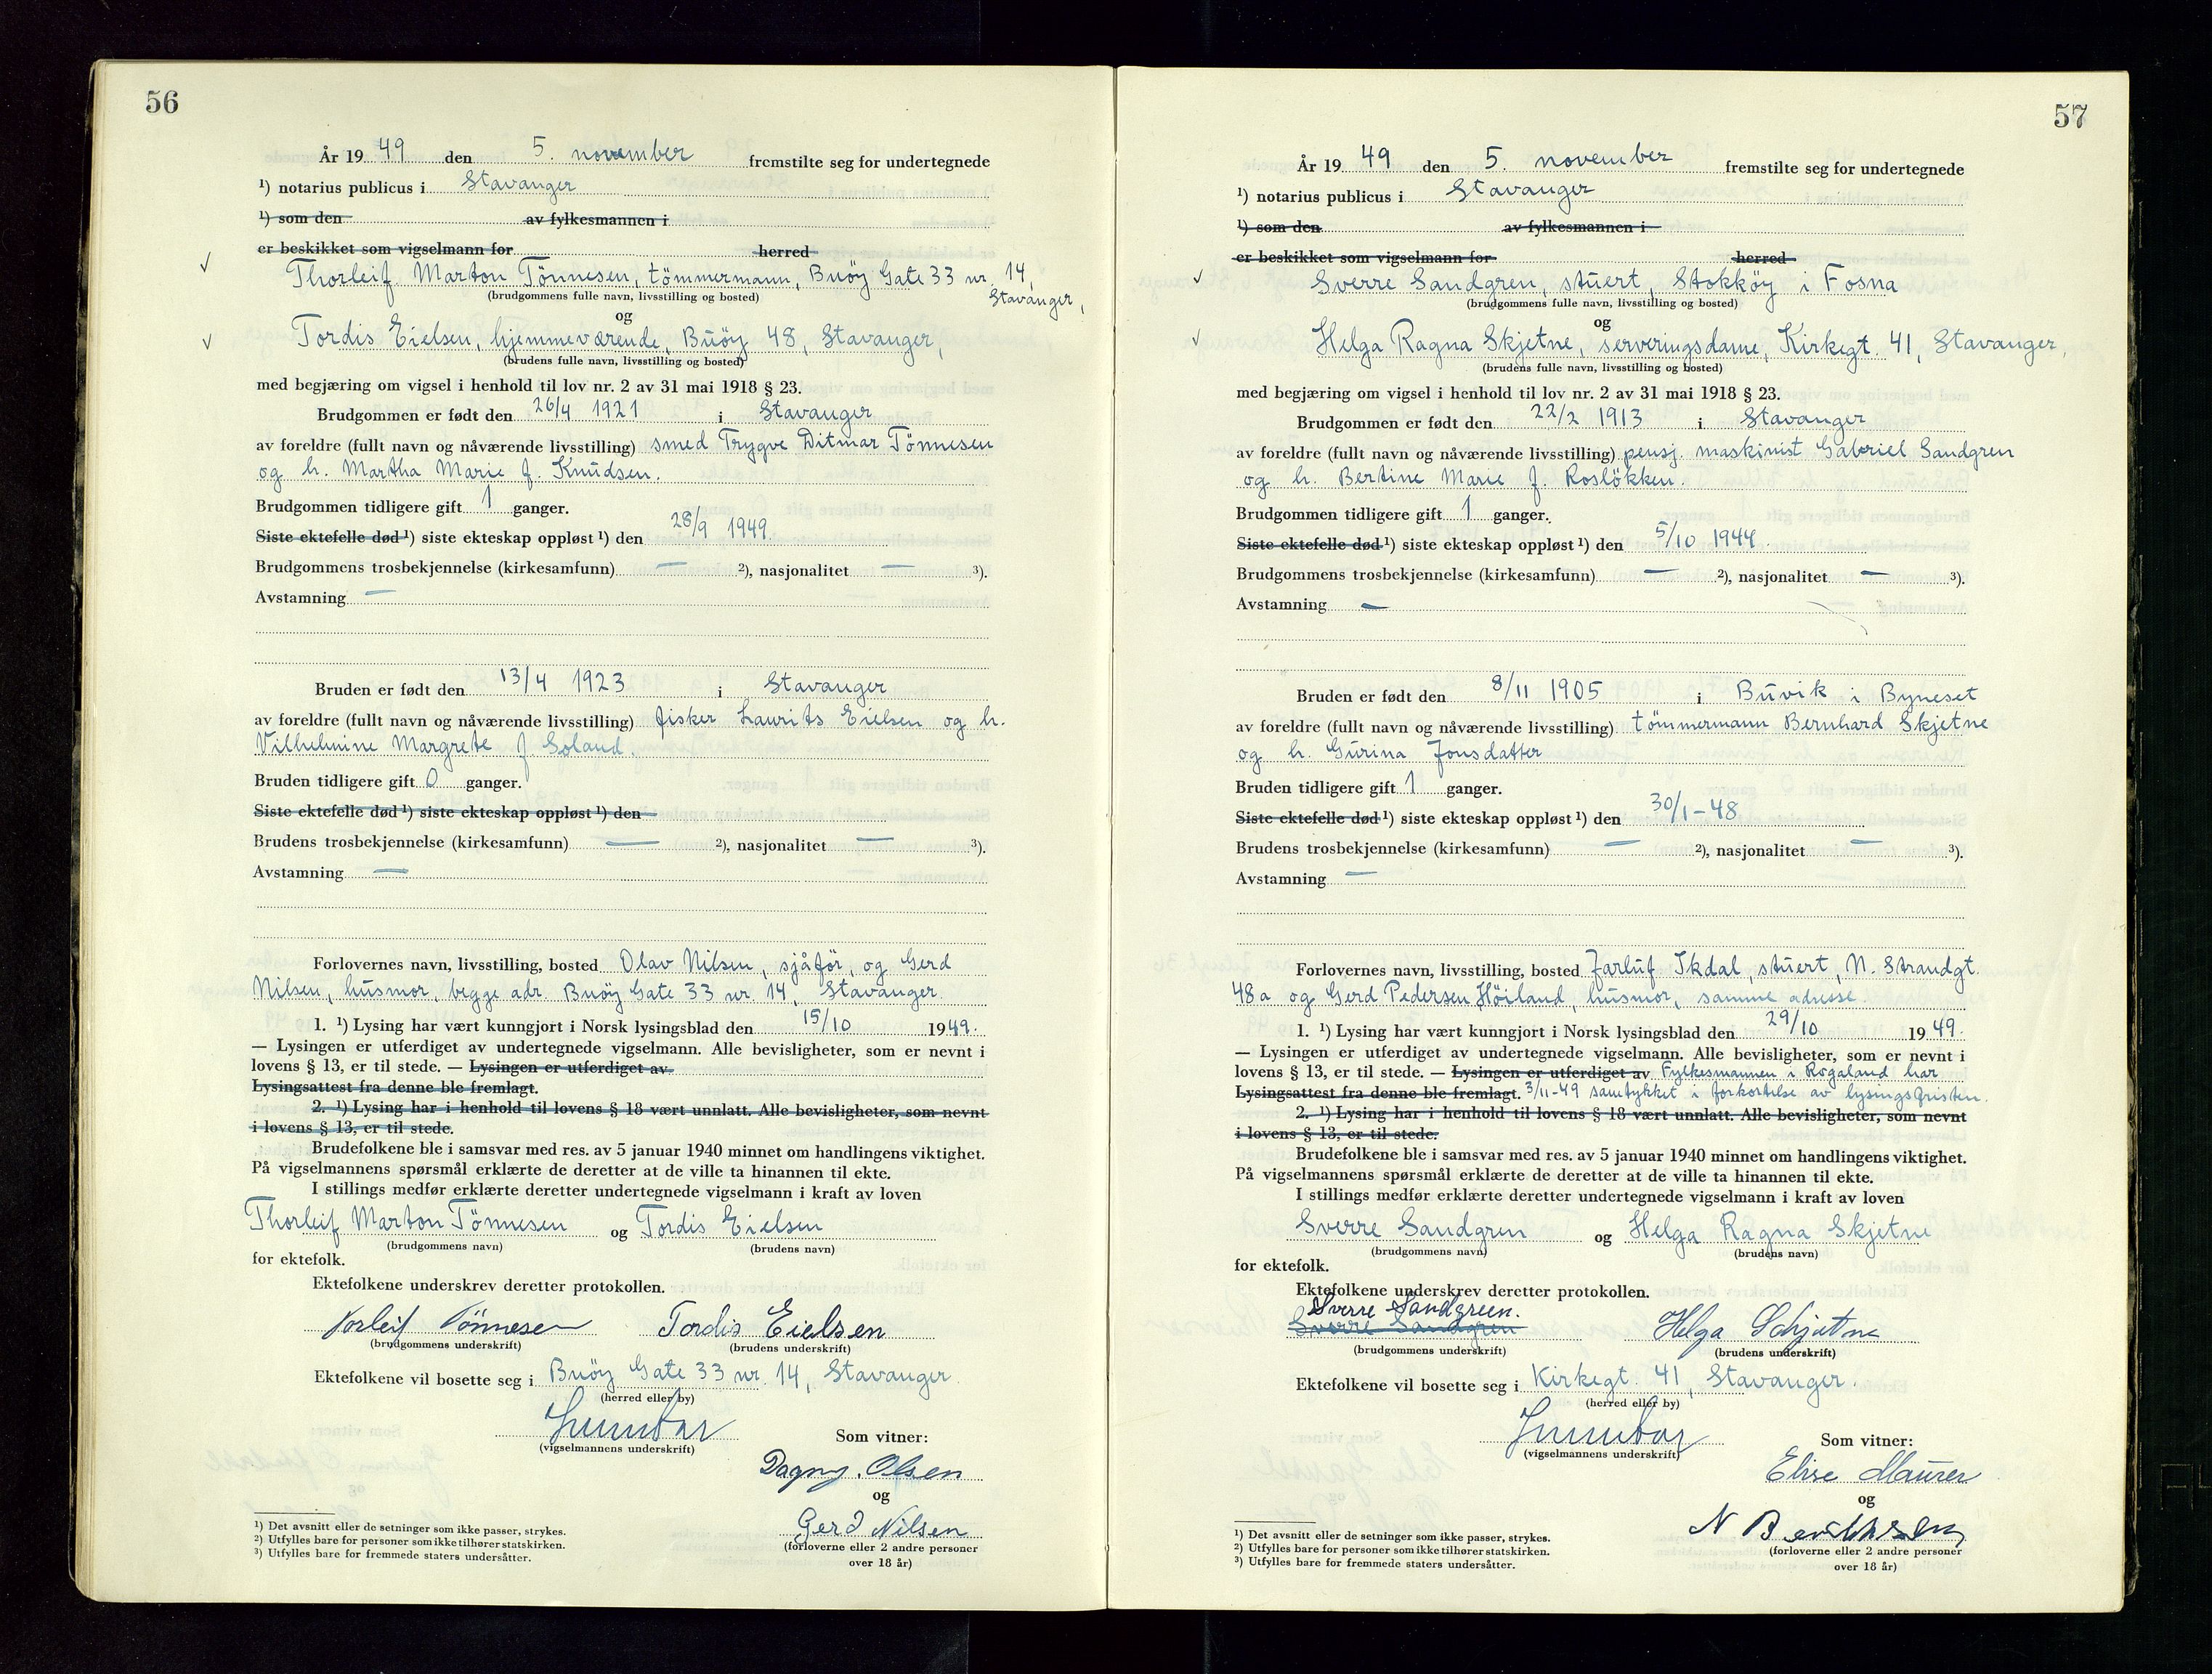 56
År 19 49 den 5. november fremstilte seg for undertegnede
¹) notarius publicus i Stavanger
¹) som den av fylkesmannen i
er beskikket som vigselmann for herred
Thorleif Marton Tönnesen, tömmermann, Buöy Gate 33 nr. 14,
Stavanger,
(brudgommens fulle navn, livsstilling og bosted)
og
Tordis Eielsen, hjemmeværende, Buöy 48, Stavanger,
(brudens fulle navn, livsstilling og bosted)
med begjæring om vigsel i henhold til lov nr. 2 av 31 mai 1918 § 23.
Brudgommen er født den 26/4 1921 i Stavanger
av foreldre (fullt navn og nåværende livsstilling) smed Trygve Ditmar Tönnesen
og h. Martha Marie f. Knudsen.
Brudgommen tidligere gift 1 ganger.
Siste ektefelle død ¹) siste ekteskap oppløst ¹) den 28/9 1949.
Brudgommens trosbekjennelse (kirkesamfunn) — ²), nasjonalitet — ³).
Avstamning —
Bruden er født den 13/4 1923 i Stavanger
av foreldre (fullt navn og nåværende livsstilling) fisker Laurits Eielsen og h.
Vilhelmine Margrete f. Soland.
Bruden tidligere gift 0 ganger.
Siste ektefelle død ¹) siste ekteskap oppløst ¹) den
Brudens trosbekjennelse (kirkesamfunn) — ²), nasjonalitet — ³).
Avstamning —
Forlovernes navn, livsstilling, bosted Olav Nilsen, sjåför, og Gerd
Nilsen, husmor, begge adr. Buöy Gate 33 nr. 14, Stavanger.
1. ¹) Lysing har vært kunngjort i Norsk lysingsblad den 15/10 1949.
— Lysingen er utferdiget av undertegnede vigselmann. Alle bevisligheter, som er nevnt i
lovens § 13, er til stede. — Lysingen er utferdiget av
Lysingsattest fra denne ble fremlagt.
2. ¹) Lysing har i henhold til lovens § 18 vært unnlatt. Alle bevisligheter, som nevnt
i lovens § 13, er til stede.
Brudefolkene ble i samsvar med res. av 5 januar 1940 minnet om handlingens viktighet.
På vigselmannens spørsmål erklærte de deretter at de ville ta hinannen til ekte.
I stillings medfør erklærte deretter undertegnede vigselmann i kraft av loven
Thorleif Marton Tönnesen og Tordis Eielsen
(brudgommens navn) (brudens navn)
for ektefolk.
Ektefolkene underskrev deretter protokollen.
Torleif Tönnesen Tordis Eielsen
(brudgommens underskrift) (brudens underskrift)
Ektefolkene vil bosette seg i Buöy Gate 33 nr. 14, Stavanger.
(herred eller by)
(vigselmannens underskrift)
Som vitner:
Dagny. Olsen
og
Gerd Nilsen
(forloverne eller 2 andre personer
over 18 år)
¹) Det avsnitt eller de setninger som ikke passer, strykes.
²) Utfylles bare for personer som ikke tilhører statskirken.
³) Utfylles bare for fremmede staters undersåtter.
57
År 19 49 den 5. november fremstilte seg for undertegnede
¹) notarius publicus i Stavanger
¹) som den av fylkesmannen i
er beskikket som vigselmann for herred
Sverre Sandgren, stuert, Stokköy i Fosna
(brudgommens fulle navn, livsstilling og bosted)
og
Helga Ragna Skjetne, serveringsdame, Kirkegt. 41, Stavanger,
(brudens fulle navn, livsstilling og bosted)
med begjæring om vigsel i henhold til lov nr. 2 av 31 mai 1918 § 23.
Brudgommen er født den 22/2 1913 i Stavanger
av foreldre (fullt navn og nåværende livsstilling) pensj. maskinist Gabriel Sandgren
og h. Bertine Marie f. Roslökken.
Brudgommen tidligere gift 1 ganger.
Siste ektefelle død ¹) siste ekteskap oppløst ¹) den 5/10 1944.
Brudgommens trosbekjennelse (kirkesamfunn) — ²), nasjonalitet — ³).
Avstamning —
Bruden er født den 8/11 1905 i Buvik i Byneset
av foreldre (fullt navn og nåværende livsstilling) tömmermann Bernhard Skjetne
og h. Gurina Jonsdatter
Bruden tidligere gift 1 ganger.
Siste ektefelle død ¹) siste ekteskap oppløst ¹) den 30/1-48
Brudens trosbekjennelse (kirkesamfunn) — ²), nasjonalitet — ³).
Avstamning —
Forlovernes navn, livsstilling, bosted Jarluf Ikdal, stuert, N. Strandgt.
48a og Gerd Pedersen Höiland, husmor, samme adresse
1. ¹) Lysing har vært kunngjort i Norsk lysingsblad den 29/10 1949.
— Lysingen er utferdiget av undertegnede vigselmann. Alle bevisligheter, som er nevnt i
lovens § 13, er til stede. — Lysingen er utferdiget av Fylkesmannen i Rogaland har
Lysingsattest fra denne ble fremlagt. 3/11-49 samtykket i forkortelse av lysingsfristen.
2. ¹) Lysing har i henhold til lovens § 18 vært unnlatt. Alle bevisligheter, som nevnt
i lovens § 13, er til stede.
Brudefolkene ble i samsvar med res. av 5 januar 1940 minnet om handlingens viktighet.
På vigselmannens spørsmål erklærte de deretter at de ville ta hinannen til ekte.
I stillings medfør erklærte deretter undertegnede vigselmann i kraft av loven
Sverre Sandgren og Helga Ragna Skjetne
(brudgommens navn) (brudens navn)
for ektefolk.
Ektefolkene underskrev deretter protokollen.
Sverre Sandgreen.
Sverre Sandgren Helga Schjetne
(brudgommens underskrift) (brudens underskrift)
Ektefolkene vil bosette seg i Kirkegt. 41, Stavanger.
(herred eller by)
(vigselmannens underskrift)
Som vitner:
Elise Maurer
og
N
(forloverne eller 2 andre personer
over 18 år)
¹) Det avsnitt eller de setninger som ikke passer, strykes.
²) Utfylles bare for personer som ikke tilhører statskirken.
³) Utfylles bare for fremmede staters undersåtter.